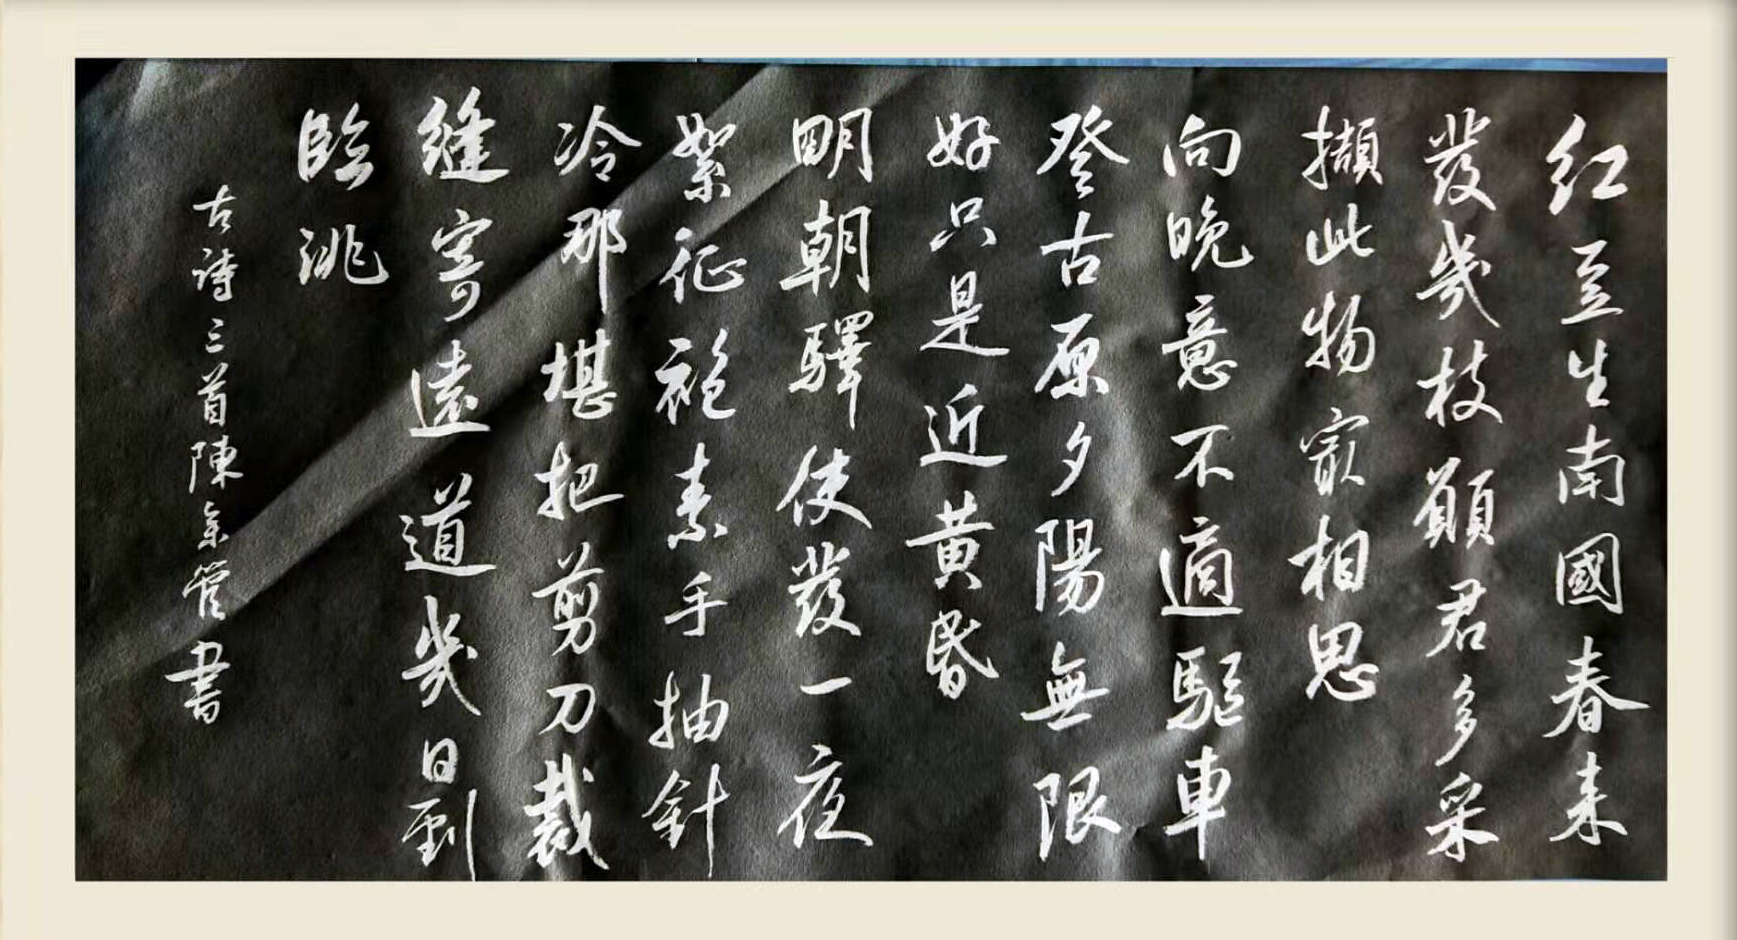 红豆生南國春来
發幾枝願君多采
擷此物寂相思
向晚意不適驅車
登古原夕陽無限
好只是近黄昏
明朝驛使發一夜
絮征袍素手抽針
冷那堪把剪刀裁
縫寄遠道幾日到
臨洮
古诗三首陳余营書